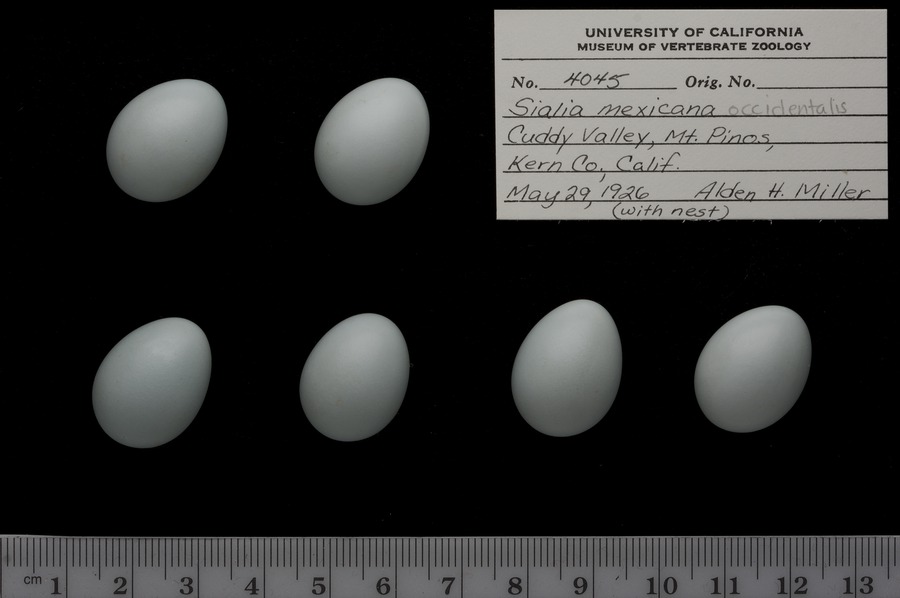 UNIVERSITY OF CALIFORNIA
MUSEUM OF VERTEBRATE ZOOLOGY
No. 4045 Orig. No.
Sialia mexicana occidentalis
Cuddy Valley, Mt. Pinos,
Kern Co., Calif.
May 29, 1926 Alden H. Miller
(with nest)
cm 1 2 3 4 5 6 7 8 9 10 11 12 13